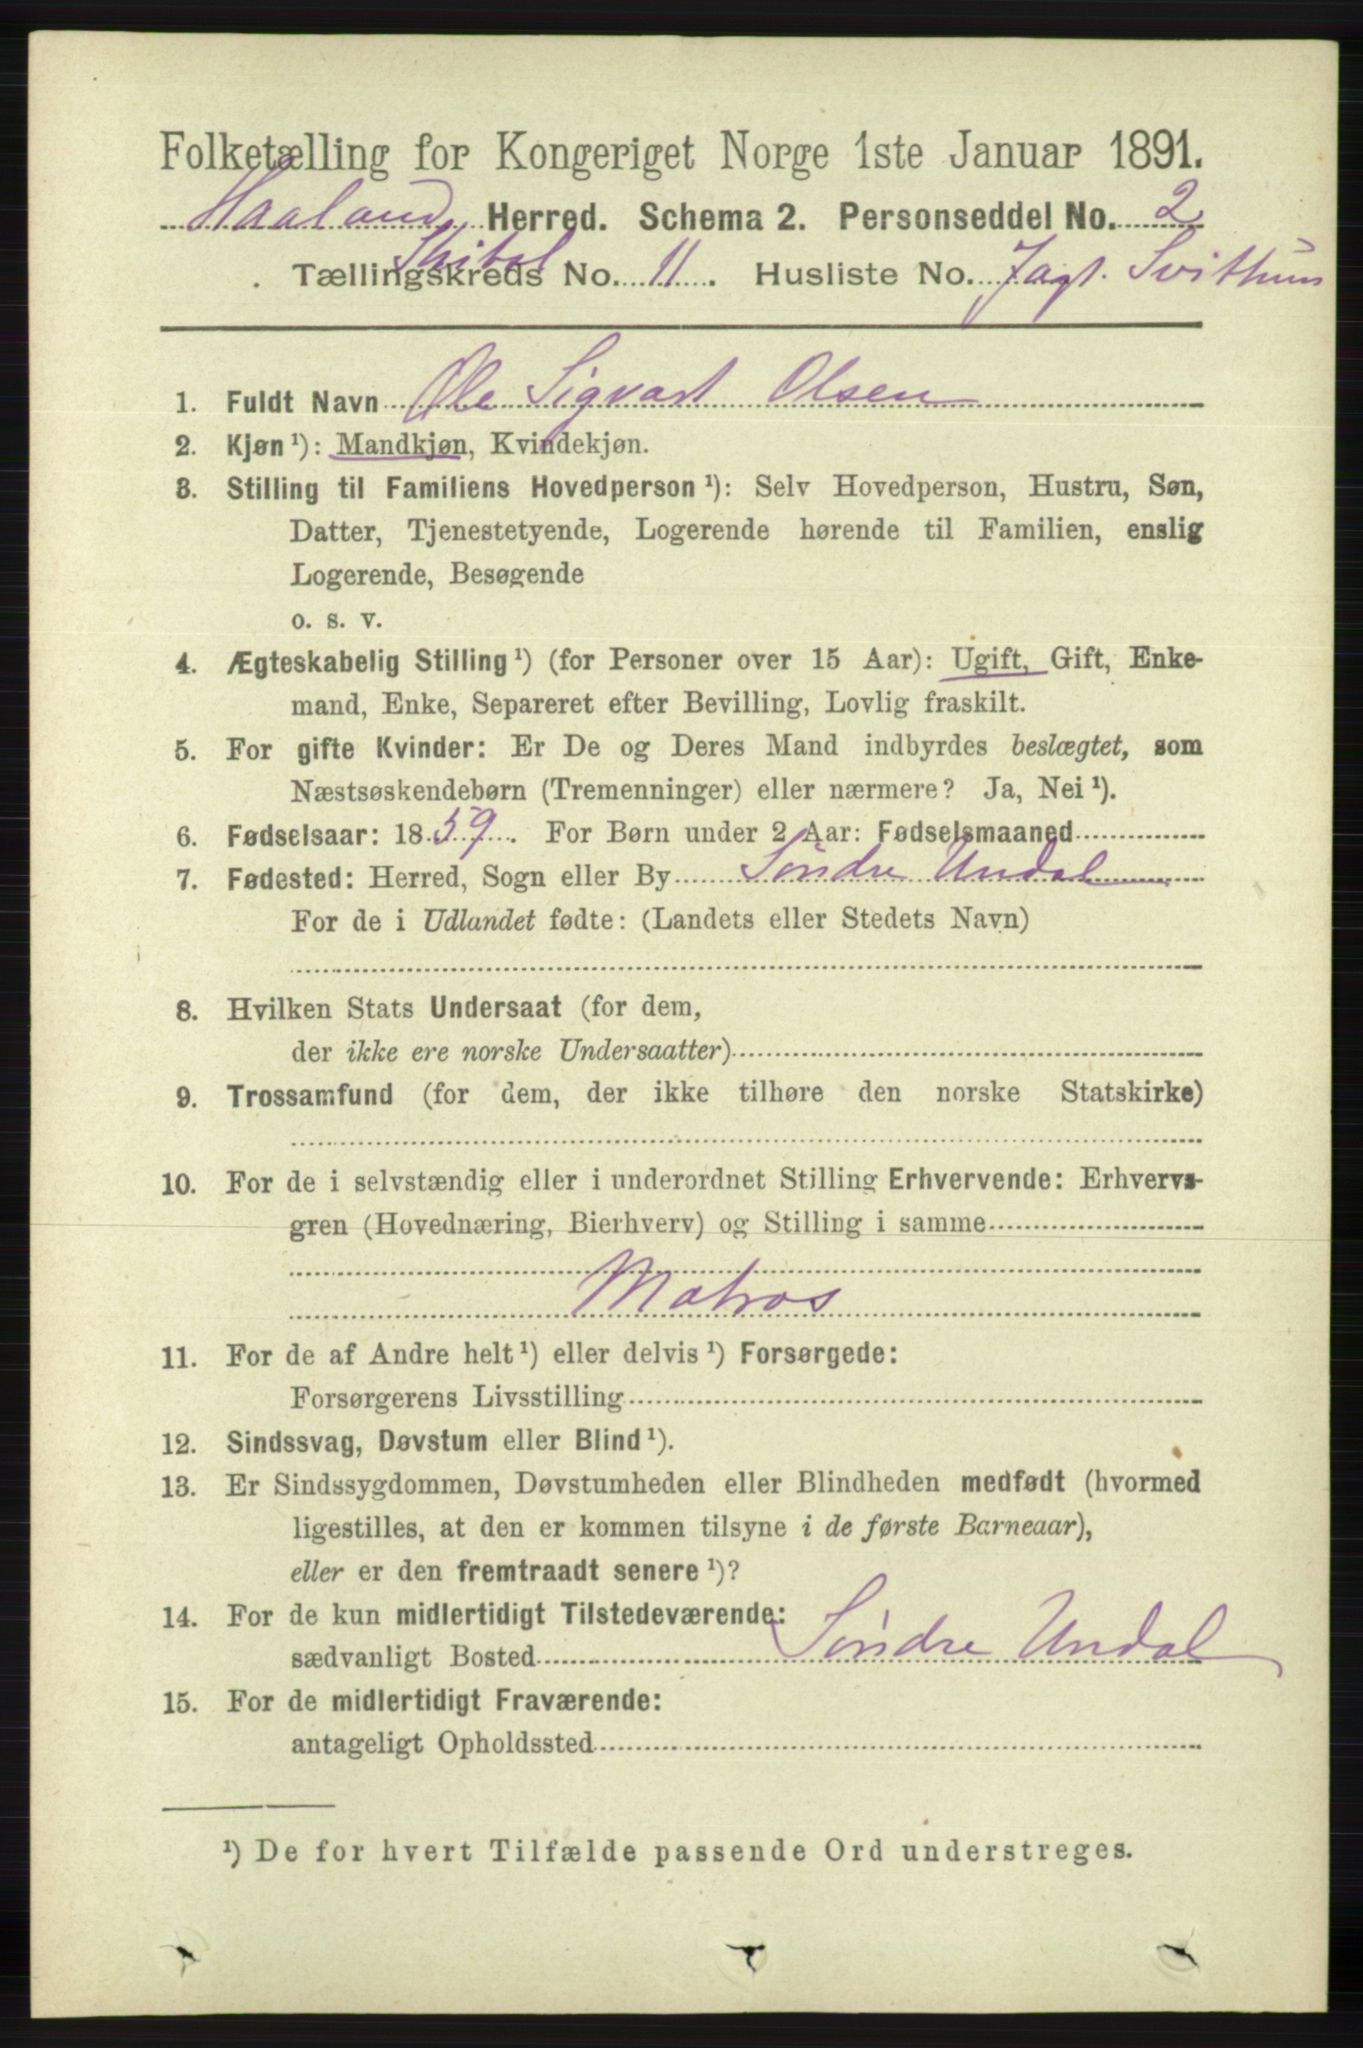 Folketælling for Kongeriget Norge 1ste Januar 1891.
Haaland Herred. Schema 2. Personseddel No. 2
Skibol
Tællingskreds No. 11. Husliste No. Jagt. Svithun
1. Fuldt Navn Ole Sigvart Olsen
2. Kjøn ¹): Mandkjøn, Kvindekjøn.
3. Stilling til Familiens Hovedperson ¹): Selv Hovedperson, Hustru, Søn,
Datter, Tjenestetyende, Logerende hørende til Familien, enslig
Logerende, Besøgende
o. s. v.
4. Ægteskabelig Stilling ¹) (for Personer over 15 Aar): Ugift, Gift, Enke-
mand, Enke, Separeret efter Bevilling, Lovlig fraskilt.
5. For gifte Kvinder: Er De og Deres Mand indbyrdes beslægtet, som
Næstsøskendebørn (Tremenninger) eller nærmere? Ja, Nei ¹).
6. Fødselsaar: 1859. For Børn under 2 Aar: Fødselsmaaned
7. Fødested: Herred, Sogn eller By Söndre Undal
For de i Udlandet fødte: (Landets eller Stedets Navn)
8. Hvilken Stats Undersaat (for dem,
der ikke ere norske Undersaatter)
9. Trossamfund (for dem, der ikke tilhøre den norske Statskirke)
10. For de i selvstændig eller i underordnet Stilling Erhvervende: Erhvervs-
gren (Hovednæring, Bierhverv) og Stilling i samme
Matros
11. For de af Andre helt ¹) eller delvis ¹) Forsørgede:
Forsørgerens Livsstilling
12. Sindssvag, Døvstum eller Blind ¹).
13. Er Sindssygdommen, Døvstumheden eller Blindheden medfødt (hvormed
ligestilles, at den er kommen tilsyne i de første Barneaar),
eller er den fremtraadt senere ¹)?
14. For de kun midlertidigt Tilstedeværende:
sædvanligt Bosted Söndre Undal
15. For de midlertidigt Fraværende:
antageligt Opholdssted
¹) De for hvert Tilfælde passende Ord understreges.